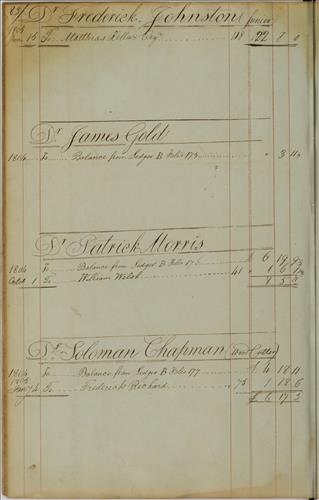 Dr Frederick Johnston Junior
15 To Matthias Esqr 118 22 7 0
Dr James Gold
1804 To Balance from Ledger B Folio 175 " 3 11½
Dr Patrick Morris
1804 To Balance from Ledger B Folio 176 £ 6 19
1 To William Welsh 41 " 1 6
8 5
Dr Soloman Chapman (West Caller)
1804 To Balance from Ledger B Folio 177 £ 4 18 11
1805
4 To Frederick Richard 75 1 18 6
£ 6 17 5